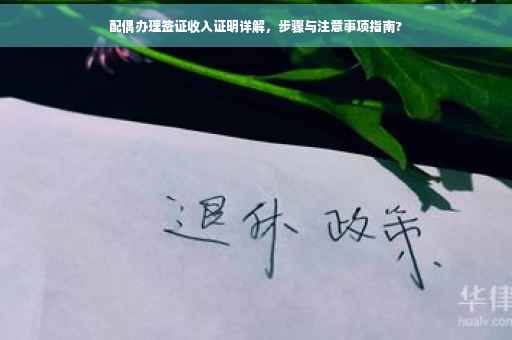 配偶办理签证收入证明详解，步骤与注意事项指南?
退休 政策
华律
hualv.com